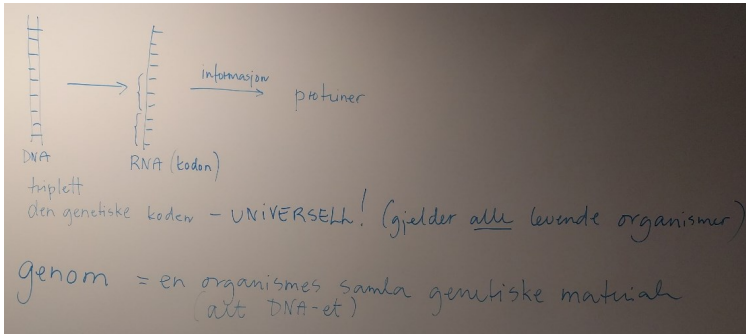 informasjon
proteiner
DNA
RNA (kodon)
triplett
den genetiske koden - UNIVERSELL! (gjelder alle levende organismer)
genom = en organismes samla genetiske materiale
(alt DNA-et)